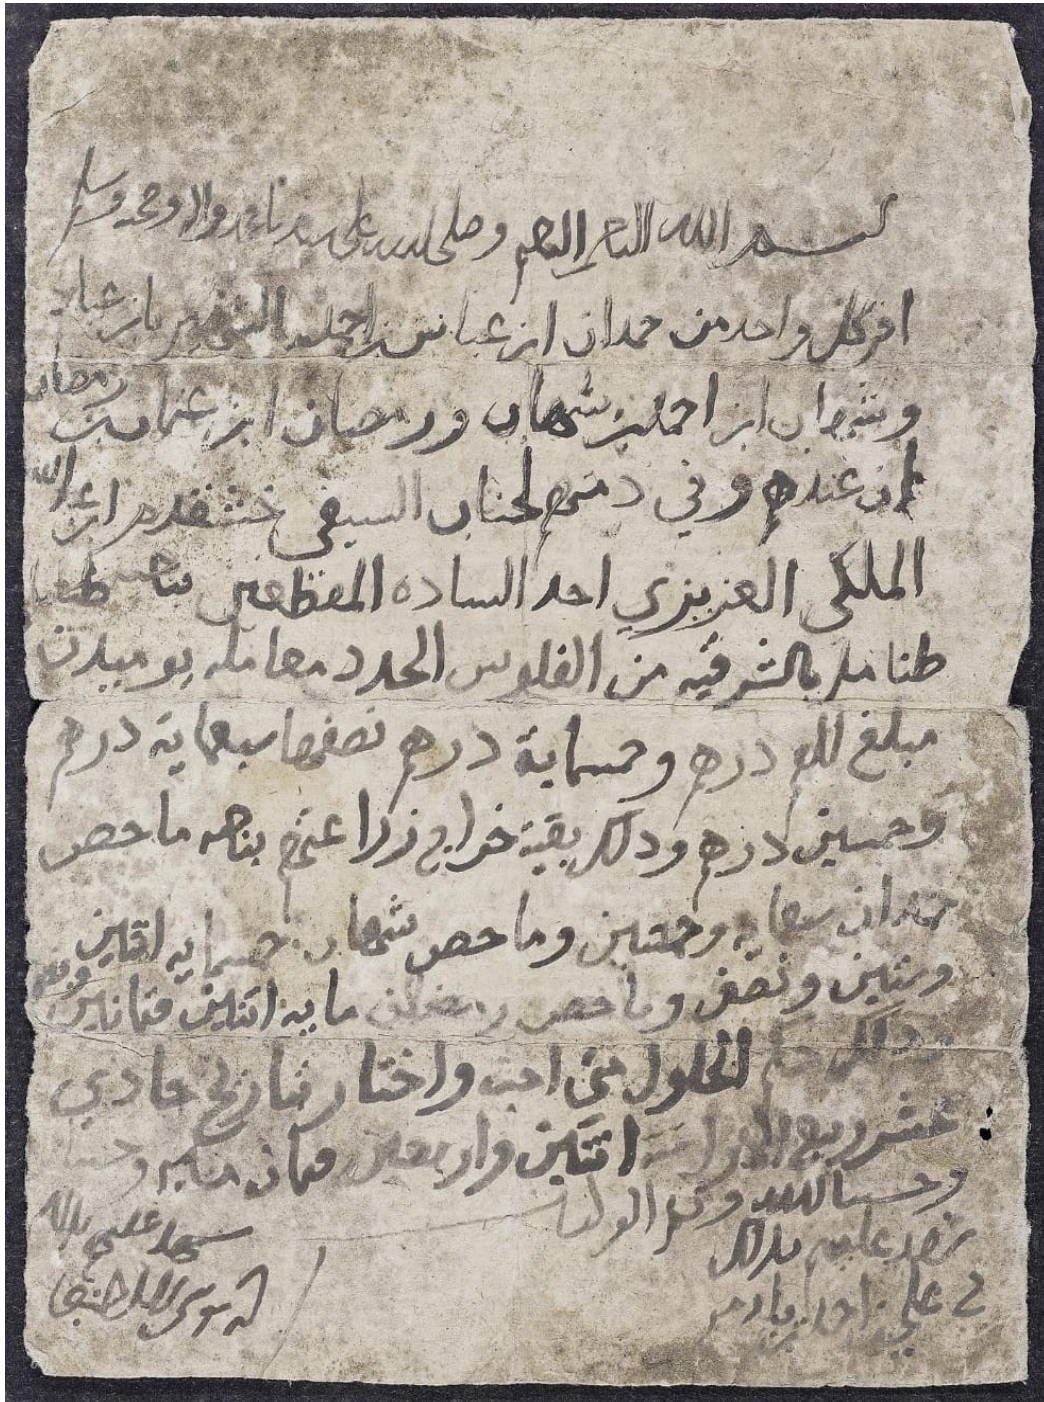 بسم الله الرحمن الرحيم وصلى الله على سيدنا محمد واله وصحبه وسلم
اقر كل واحد من حمدان ابن عباس بن احمد الشهير بابن
وشهاب ابن احمد بن شهاب ورمضان ابن عثمان بن رمضان
ان عندهم وفي ذمتهم لجناب السيفي خشقدم ابن عبد الله
الملكي العزيزي احد الساده المقطعين بناحية
طنامل بالشرقيه من الفلوس الجدد معامله يوميذن
مبلغ الف درهم وخمسماية درهم نصفها سبعماية درهم
وخمسين درهم وذلك بقية خراج زراعتهم بناحيه ما خص
حمدان سبعمايه وخمسين وما خص شهاب خمسمايه اثنين
وستين ونصف وما خص رمضان مايه اثنين وثمانين ونصف
ذلك حكم الحلول متى احب واختار بتاريخ حادي
عشر ربيع الاول سنة اثنين واربعين وثمان مايه
وحسبنا الله ونعم الوكيل
شهد عليهم بذلك
شهد عليه بذلك
علي بن احمد بن